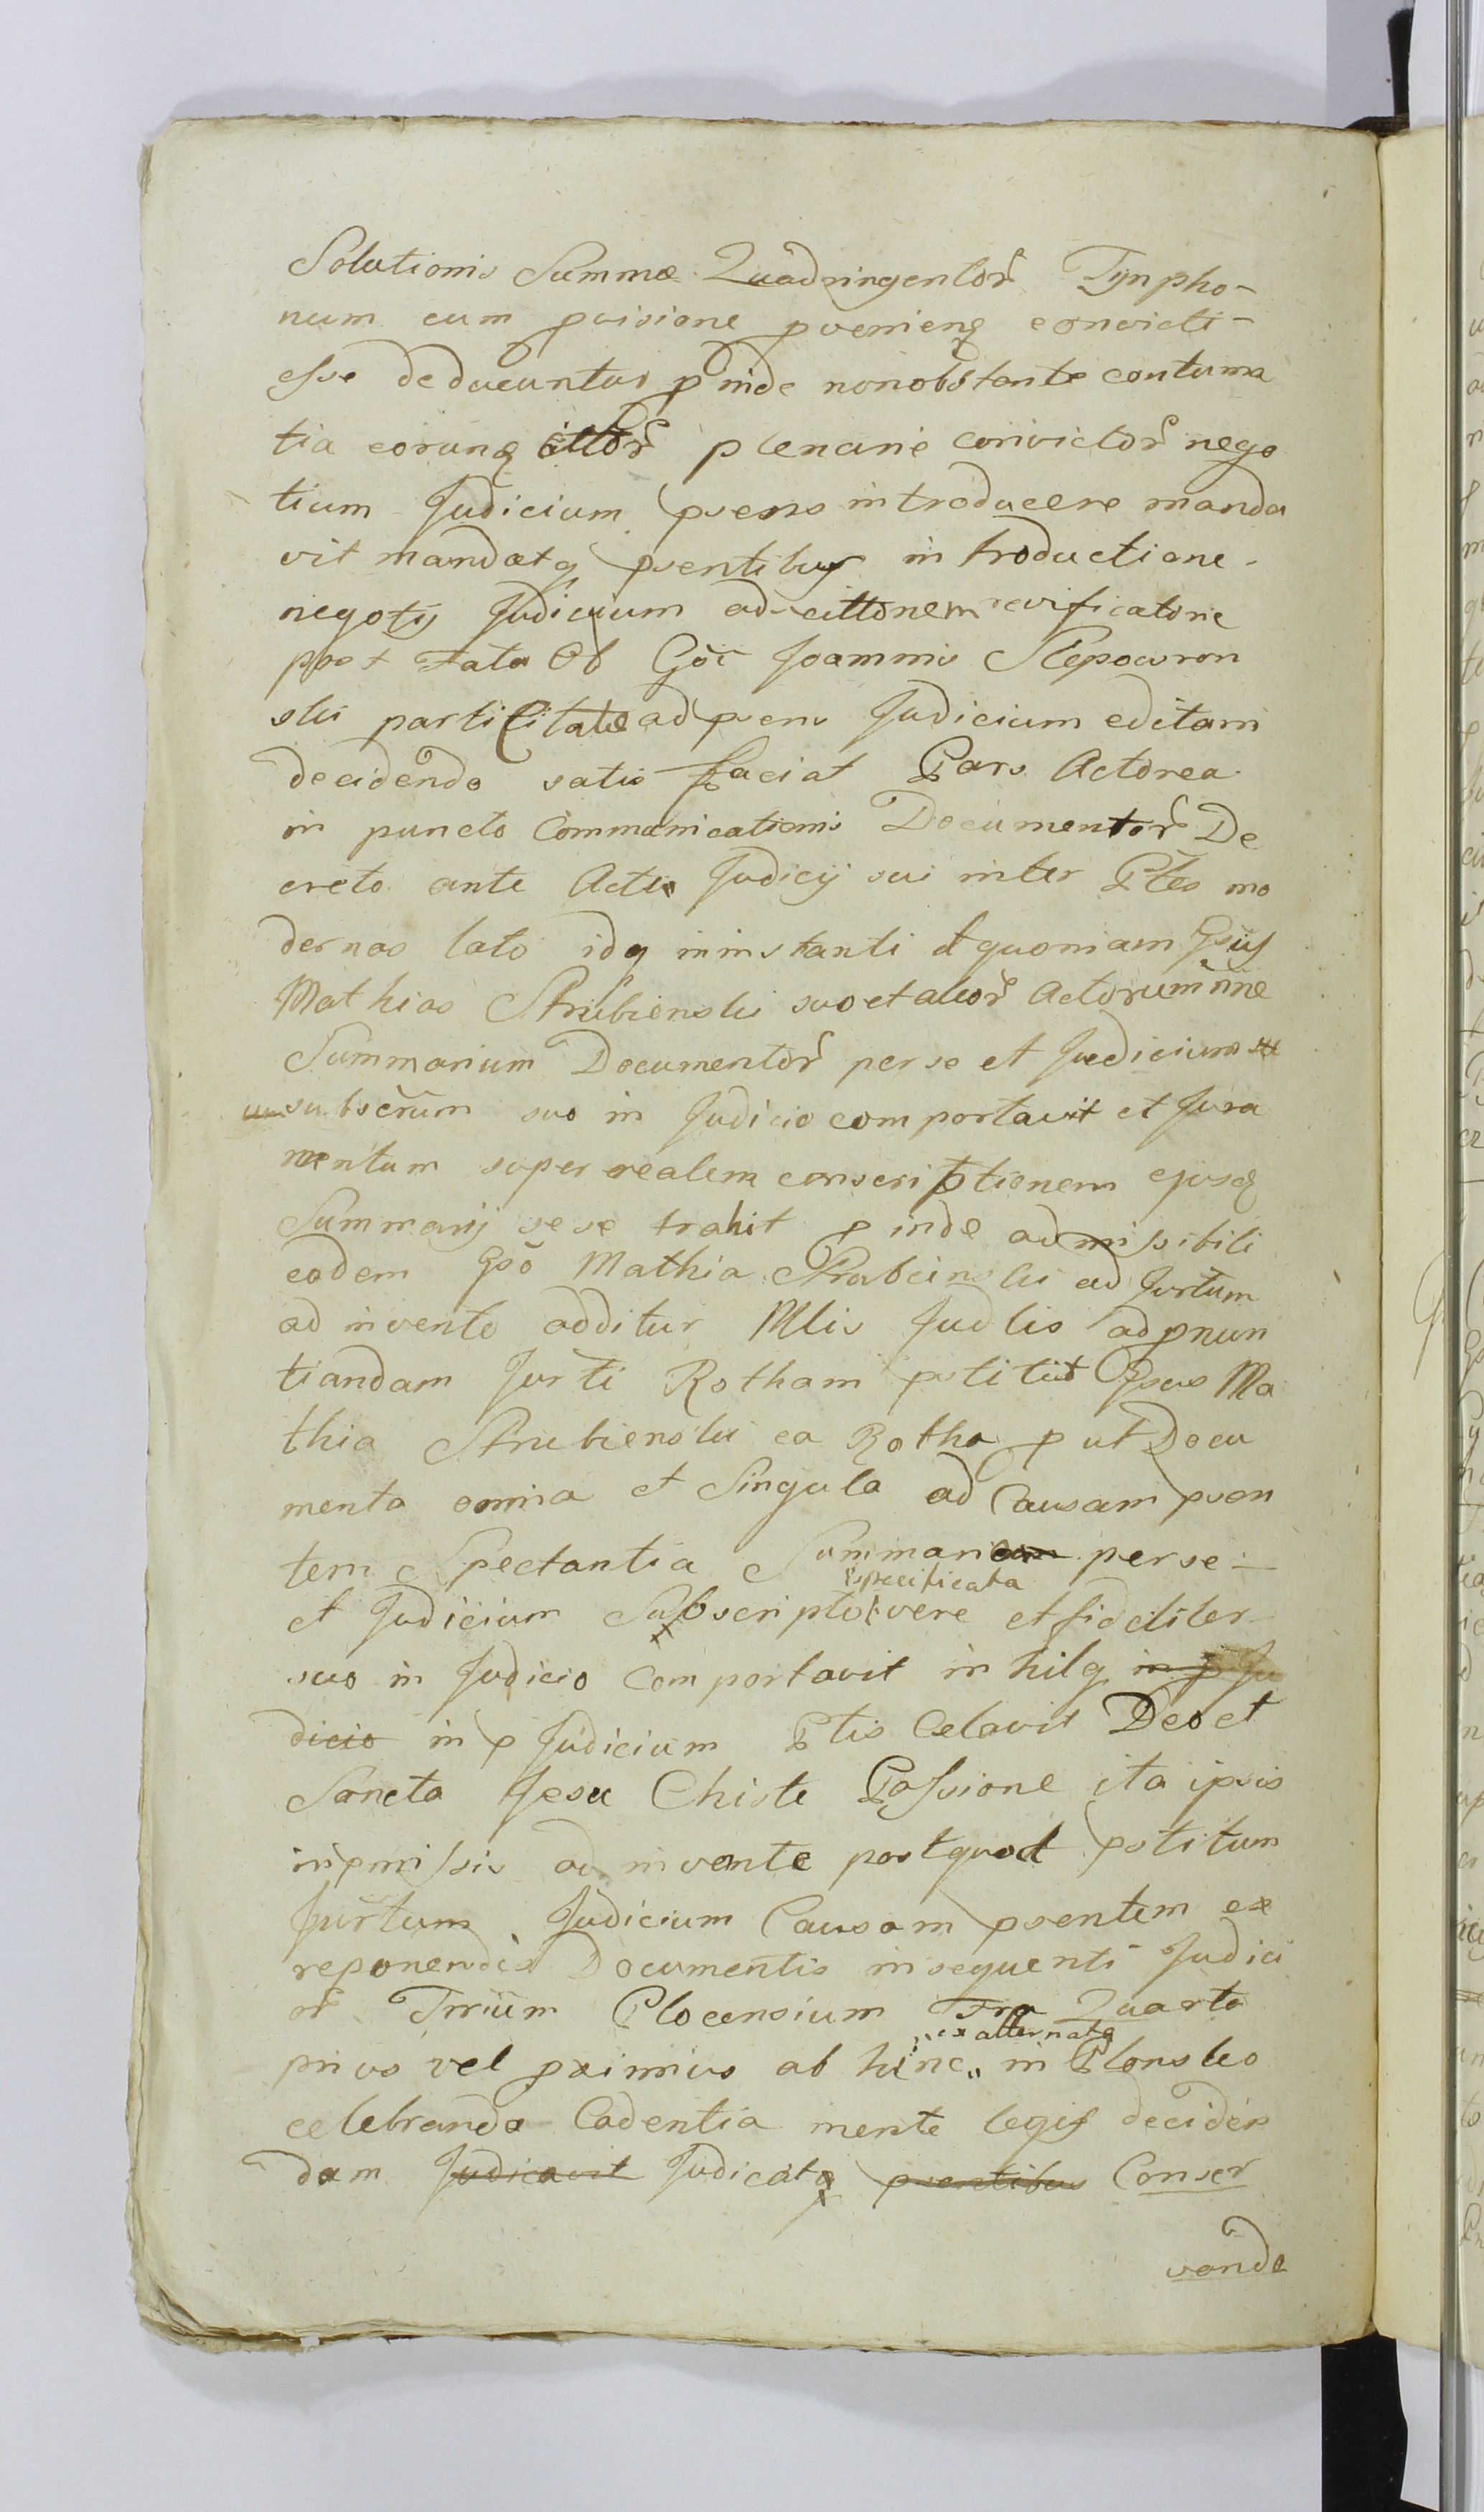 Solutionis Summæ Quadringentor Tynpho-
num cum pvisione pvenienq convicti-
esse deducuntur pinde nonobstante contuma
tia eorunq cittor plenarie convictor nego
tium Judicium psens introducere manda
vit mandatq psentibus introductione
negotij Judicium ad cittonem revificatorie
post Fata Olb Gōi Joannis
ski parti citatæ ad psens Judicium editam
decidendo satis faciat Pars Actorea
in puncto Communicationis Documentor De
creto ante Actu Judicij sui inter Ptes mo
dernas lato idq ininstanti et quoniam Gsus
Mathias Strubienski suo et alior Actorum nne
Summarium Documentor per se et Judicium
subscrum suo in Judicio comportavit et Jura
mentum super realem conscriptionem ejusq
Summarij sese trahit pinde admissibili
eodem Gsō Mathia Strubeinski ad Jurtum
ad invento additur Mlis Judlis ad pnun
tiandam Jurti Rotham pstitit Gsus Ma
thia Strubienski ea Rotha put Docu
menta omnia et Singula ad Causam psen
tem Spectantia Summario per se-
specificata
et Judicium Subscripto vere et fideliter
suo in Judicio Comportavit in hilq in p Ju
dicio in pJudicium Ptis Celavit Deo et
Sancta Jesu Christe Passione ita ipsis
in pmissis ad invente postquod pstitum
Jurtum Judicium Causam psentem ex
reponendis Documentis in sequenti Judici
or Trrium Plocensium Fra Quarta
ex alternata
prius vel pximius ab hinc in Plonsko
celebranda Cadentia mente legis deciden
dam Judicavit Judicatq psentibus Conser
vande